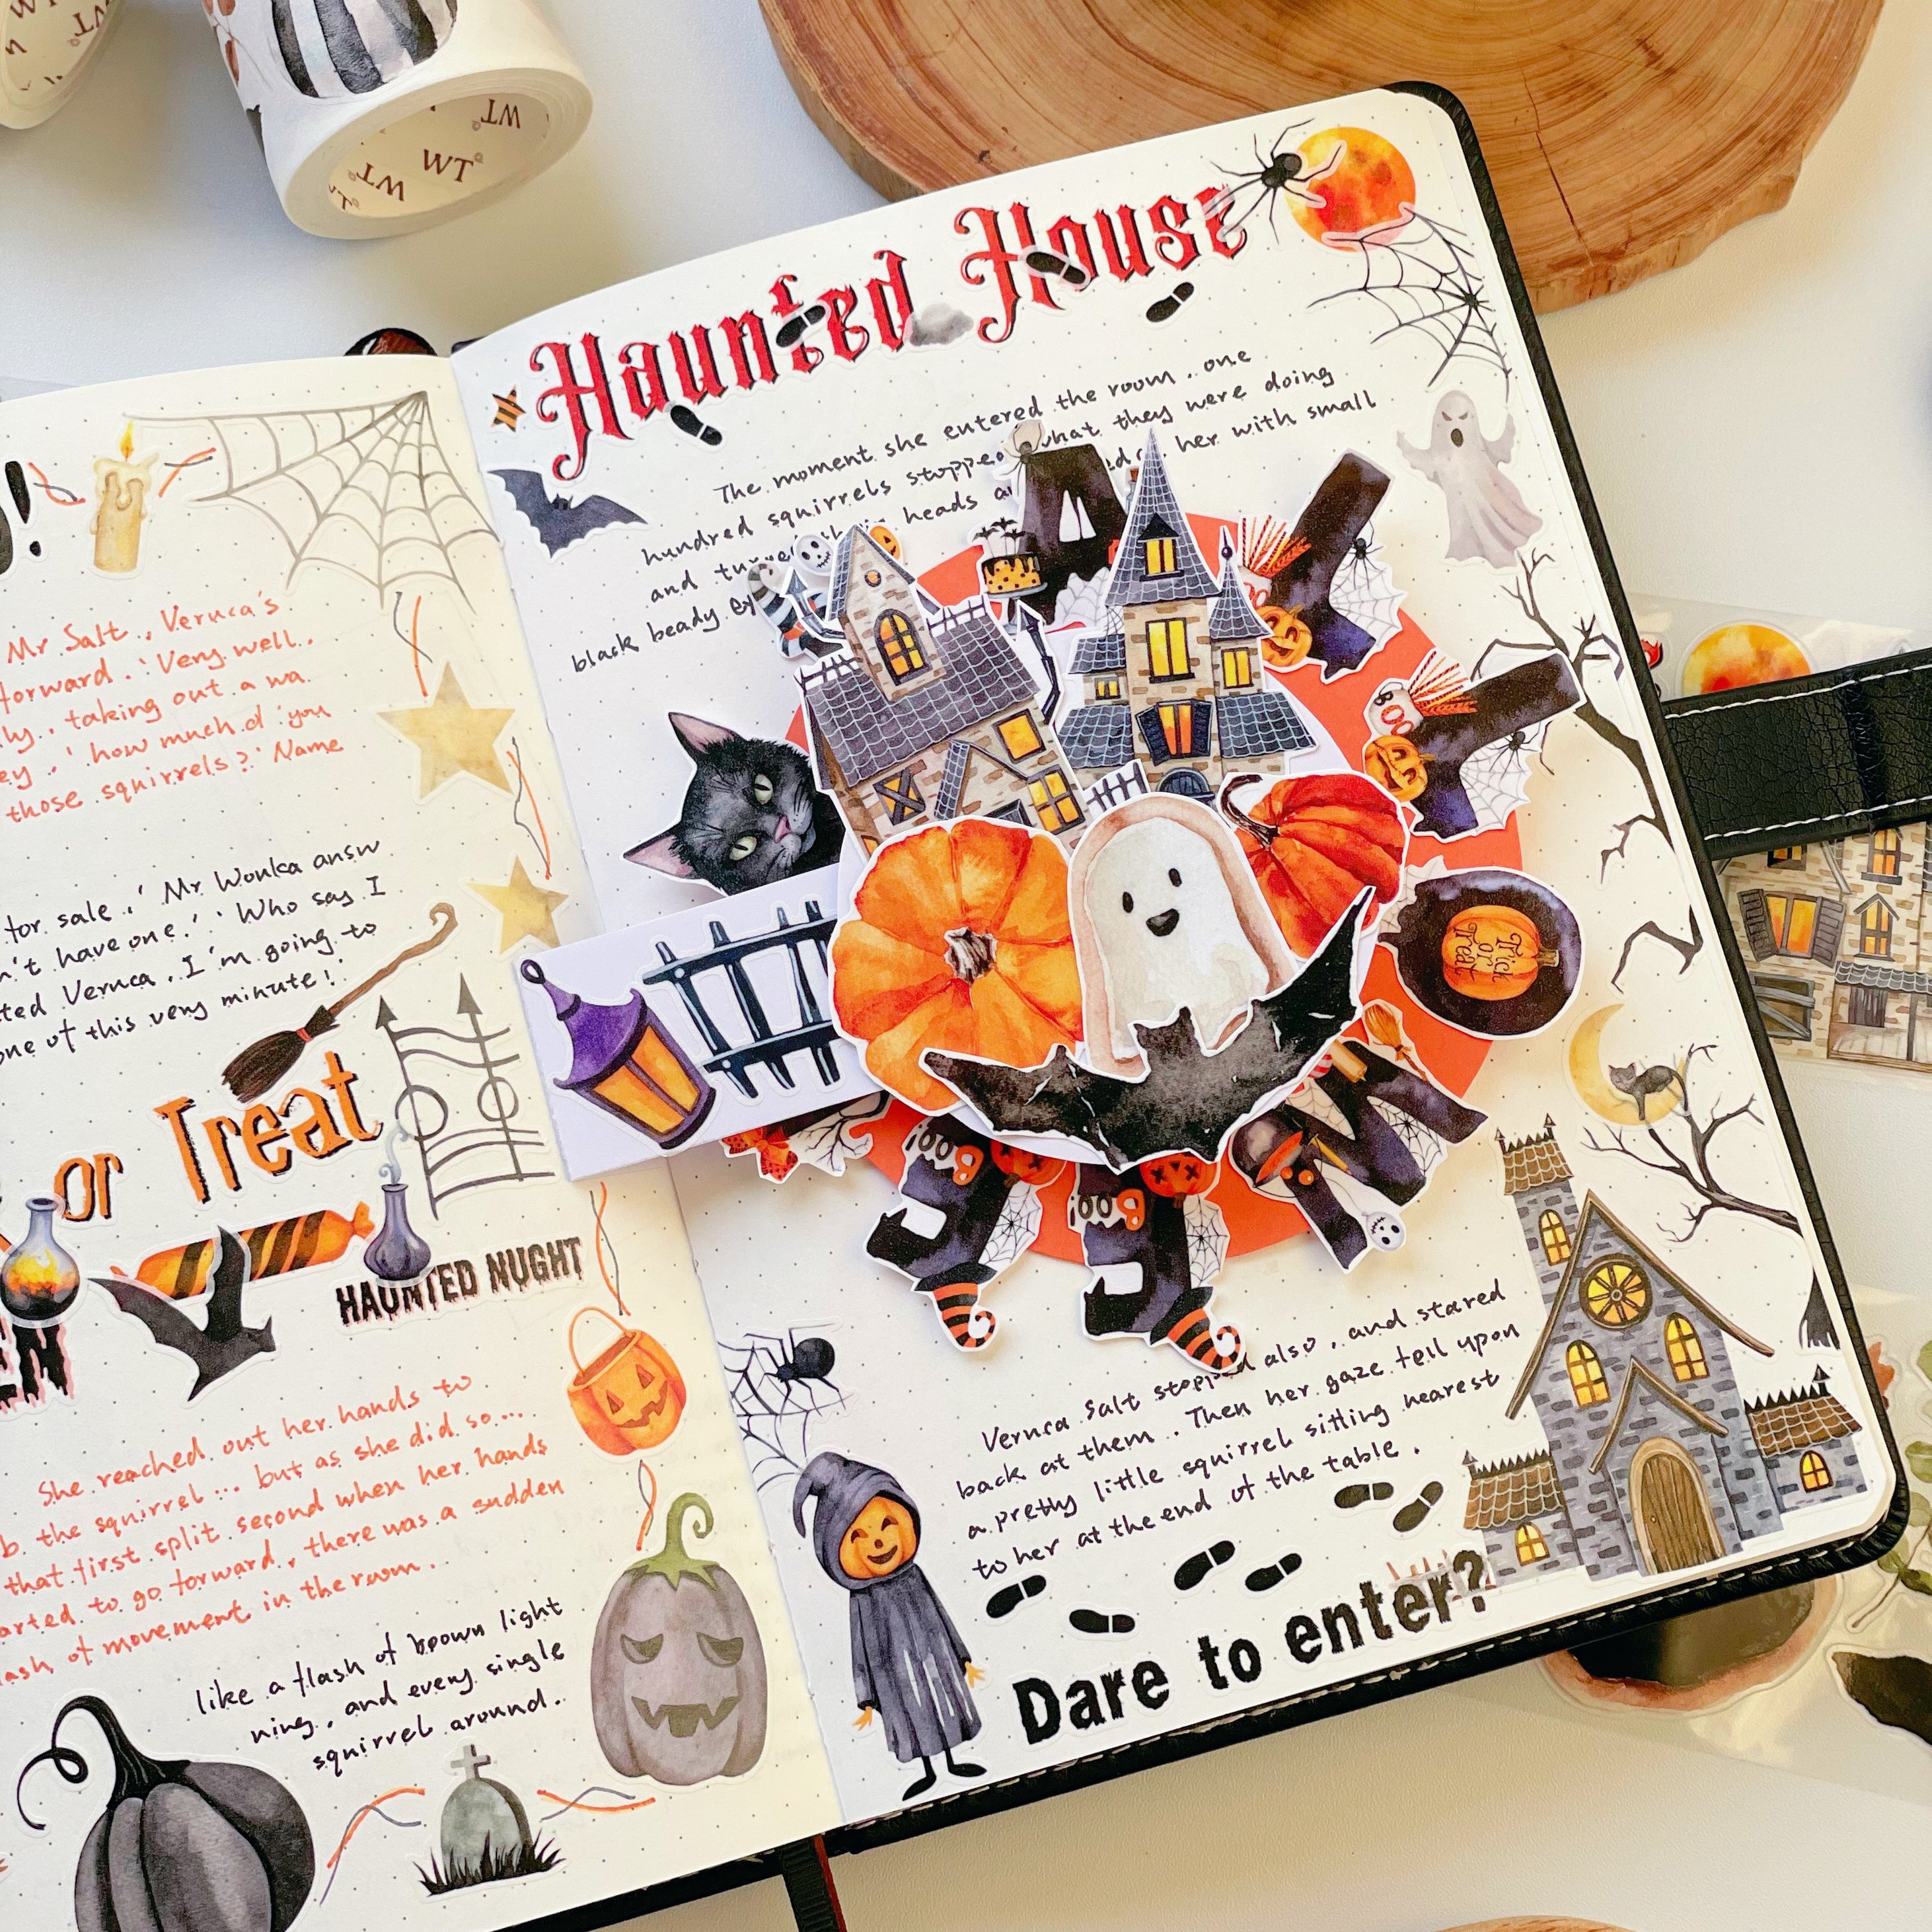 WT
WT
WT
Mr Salt, Veruca's
forward. 'Very well.
taking out a wa
'how much d'you
those squirrels?' Name
for sale,' Mr Wonka answ
n't have one.' 'Who say I
ted Veruca. I'm going to
one of this very minute!'
or Treat
HAUNTED NUGHT
She reached out her hands to
the squirrel... but as she did so...
that first split second when her hands
arted to go forward, there was a sudden
lash of movement in the room.
like a flash of brown light
ning, and every single
squirrel around.
Haunted House
The moment she entered the room, one
hundred squirrels stopped what they were doing
and turned their heads her with small
black beady
BOO
BOO
Trick
or
Treat
BOO
BOO
Veruca Salt stopped also, and stared
back at them. Then her gaze fell upon
a pretty little squirrel sitting nearest
to her at the end of the table.
Dare to enter?